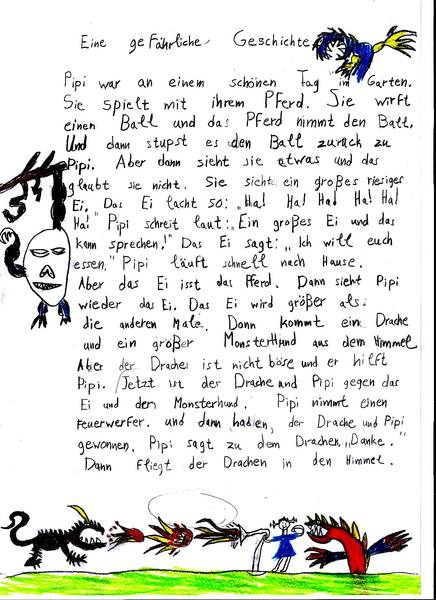 Eine gefährliche Geschichte
Pipi war an einem schönen Tag im Garten.
Sie spielt mit ihrem Pferd. Sie wirft
einen Ball und das Pferd nimmt den Ball.
Und dann stupst es den Ball zurück zu
Pipi. Aber dann sieht sie etwas und das
glaubt sie nicht. Sie sieht ein großes riesiges
Ei. Das Ei lacht so: „Ha! Ha! Ha! Ha! Ha!
Ha!" Pipi schreit laut: „Ein großes Ei und das
kann sprechen!" Das Ei sagt: „Ich will euch
essen." Pipi läuft schnell nach Hause.
Aber das Ei isst das Pferd. Dann sieht Pipi
wieder das Ei. Das Ei wird größer als
die anderen Male. Dann kommt ein Drache
und ein großer Monsterhund aus dem Himmel
Aber der Drache ist nicht böse und er hilft
Pipi. Jetzt ist der Drache und Pipi gegen das
Ei und den Monsterhund. Pipi nimmt einen
Feuerwerfer. und dann haben, der Drache und Pipi
gewonnen. Pipi sagt zu dem Drachen „Danke."
Dann fliegt der Drachen in den Himmel.